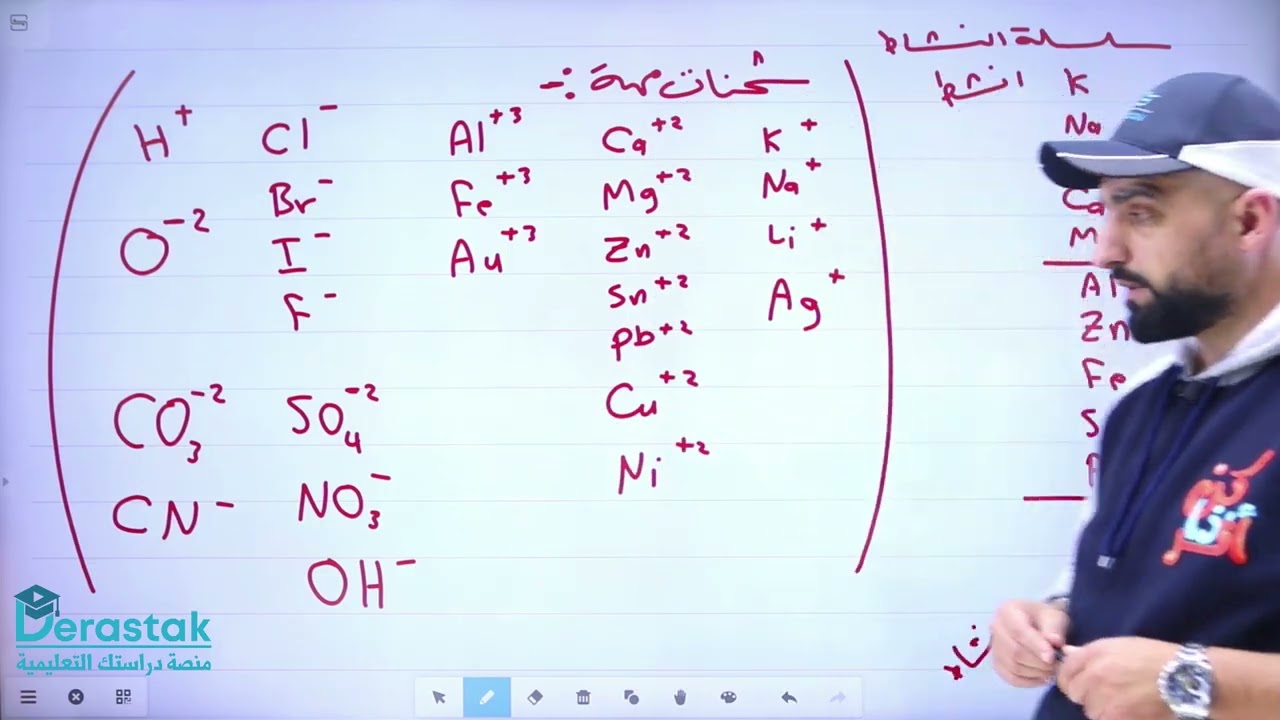 سلسلة النشاط
انشط
K
Na
Ca
M
Al
Zn
Fe
S
شحنات مهمة :-
K⁺
Na⁺
Li⁺
Ag⁺
Ca⁺²
Mg⁺²
Zn⁺²
Sn⁺²
Pb⁺²
Cu⁺²
Ni⁺²
Al⁺³
Fe⁺³
Au⁺³
Cl⁻
Br⁻
I⁻
F⁻
H⁺
O⁻²
SO₄⁻²
NO₃⁻
OH⁻
CO₃⁻²
CN⁻
Derastak
منصة دراستك التعليمية